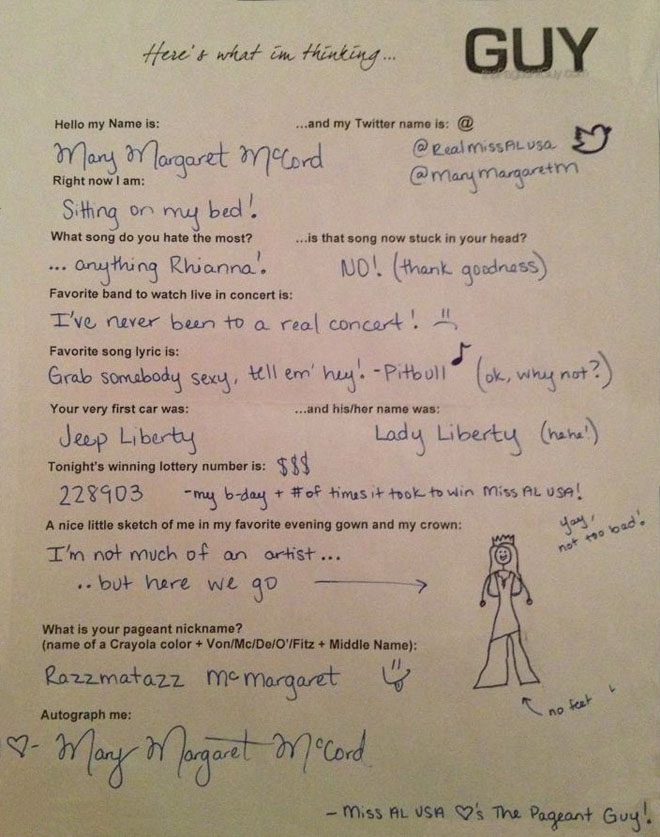 Here's what im thinking...
GUY
Hello my Name is:
...and my Twitter name is: @
Mary Margaret McCord
@RealmissALusa
@marymargaretm
Right now I am:
Sitting on my bed!
What song do you hate the most?
...is that song now stuck in your head?
... anything Rhianna!
NO! (thank goodness)
Favorite band to watch live in concert is:
I've never been to a real concert!
Favorite song lyric is:
Grab somebody sexy, tell em' hey! - Pitbull (ok, why not?)
Your very first car was:
...and his/her name was:
Jeep Liberty
Lady Liberty (hehe!)
Tonight's winning lottery number is: $$$
228903 - my b-day + # of times it took to win Miss AL USA!
A nice little sketch of me in my favorite evening gown and my crown:
yay,
not too bad!
I'm not much of an artist...
..but here we go
What is your pageant nickname?
(name of a Crayola color + Von/Mc/De/O'/Fitz + Middle Name):
Razzmatazz McMargaret
no feet
Autograph me:
Mary Margaret McCord
- Miss AL USA ♡'s The Pageant Guy!